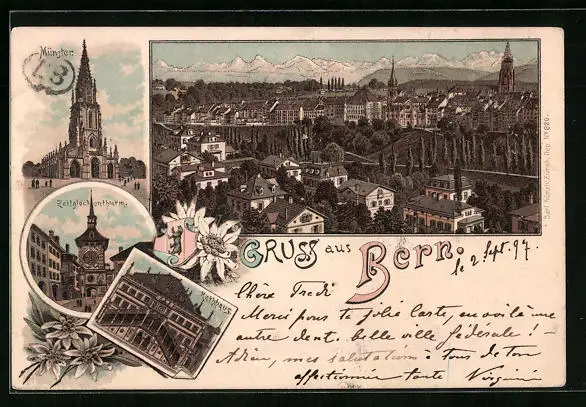 Münster
Zeitglockenthurm.
Rathhaus
Gruss aus Bern.
le 2 Sept. 97.
Chère Fredi
Merci pour ta jolie carte, en voilà une
autre dont. belle ville fédérale! -
Adieu, mes salutations à tous de ton
affectionnée tante Virginie